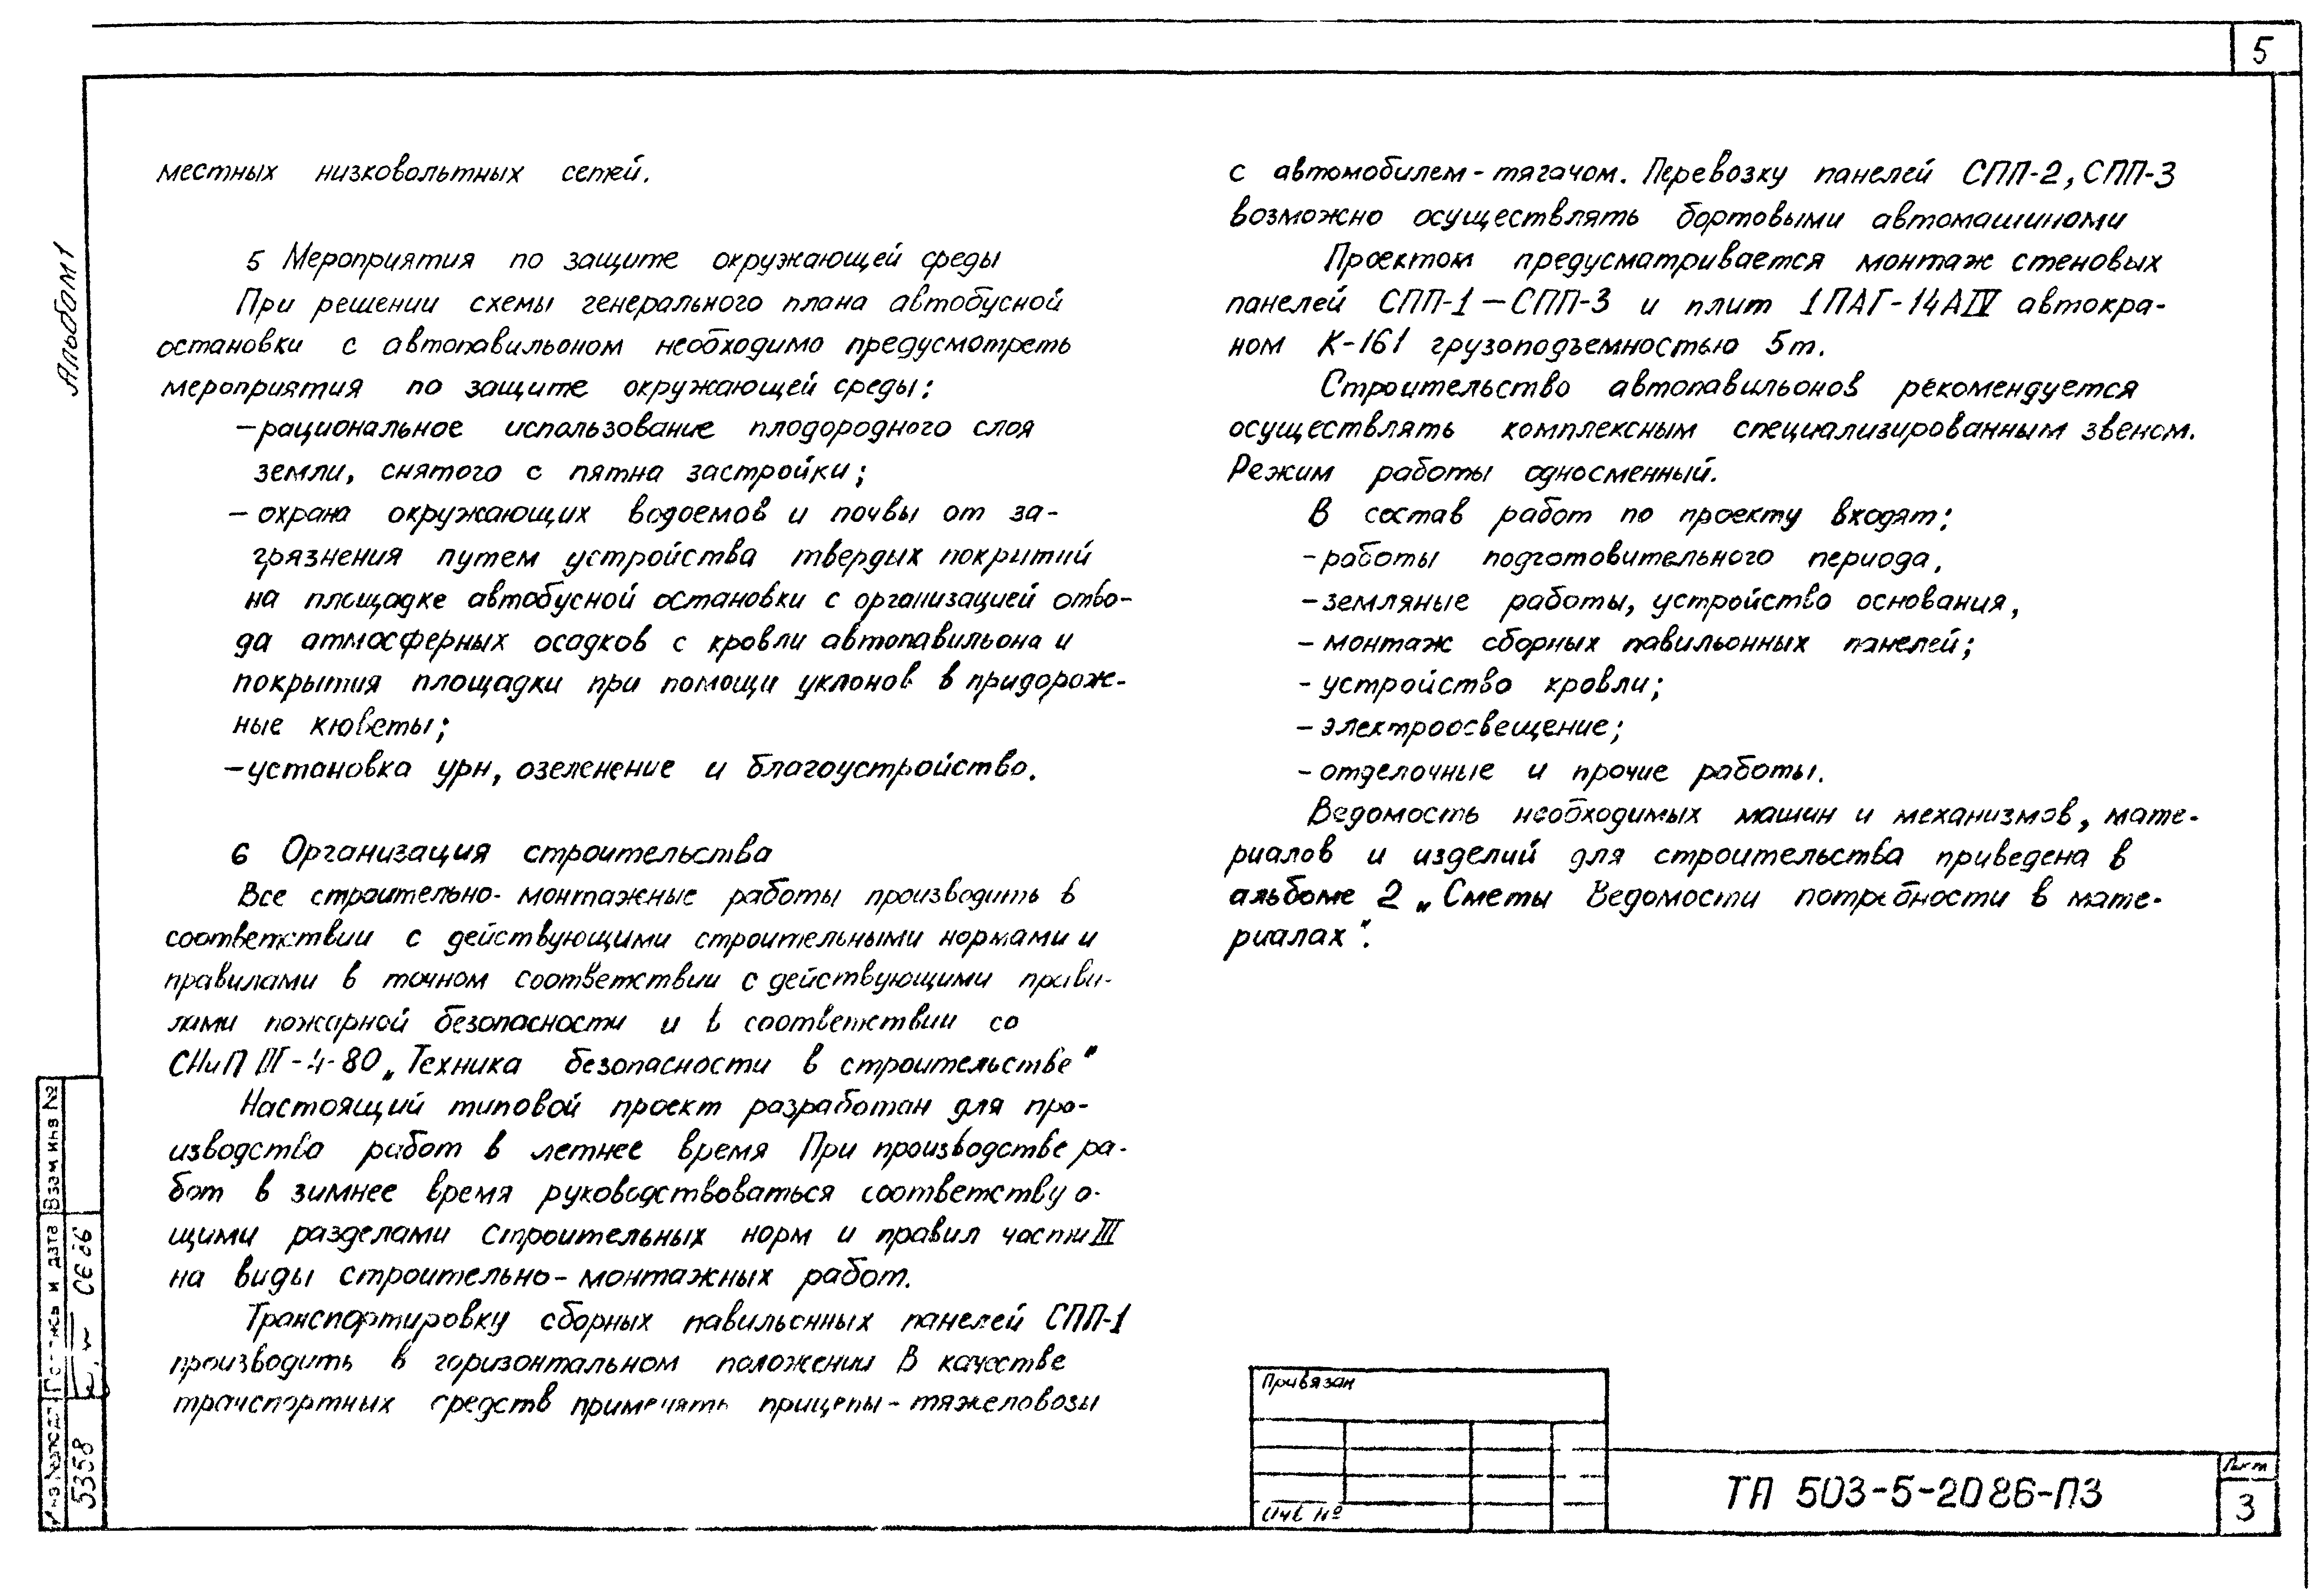 5
Альбом 1
местных низковольтных сетей.
5 Мероприятия по защите окружающей среды
При решении схемы генерального плана автобусной
остановки с автопавильоном необходимо предусмотреть
мероприятия по защите окружающей среды:
– рациональное использование плодородного слоя
земли, снятого с пятна застройки;
– охрана окружающих водоемов и почвы от за-
грязнения путем устройства твердых покрытий
на площадке автобусной остановки с организацией отво-
да атмосферных осадков с кровли автопавильона и
покрытия площадки при помощи уклонов в придорож-
ные кюветы;
– установка урн, озеленение и благоустройство.
6 Организация строительства
Все строительно-монтажные работы производить в
соответствии с действующими строительными нормами и
правилами в точном соответствии с действующими прави-
лами пожарной безопасности и в соответствии со
СНиП III-4-80 „Техника безопасности в строительстве"
Настоящий типовой проект разработан для про-
изводства работ в летнее время При производстве ра-
бот в зимнее время руководствоваться соответствую-
щими разделами строительных норм и правил части III
на виды строительно-монтажных работ.
Транспортировку сборных павильонных панелей СПП-1
производить в горизонтальном положении В качестве
транспортных средств применять прицепы-тяжеловозы
с автомобилем-тягачом. Перевозку панелей СПП-2, СПП-3
возможно осуществлять бортовыми автомашинами
Проектом предусматривается монтаж стеновых
панелей СПП-1 – СПП-3 и плит 1ПАГ-14АIV автокра-
ном К-161 грузоподъемностью 5т.
Строительство автопавильонов рекомендуется
осуществлять комплексным специализированным звеном.
Режим работы односменный.
В состав работ по проекту входят:
– работы подготовительного периода,
– земляные работы, устройство основания,
– монтаж сборных павильонных панелей;
– устройство кровли;
– электроосвещение;
– отделочные и прочие работы.
Ведомость необходимых машин и механизмов, мате-
риалов и изделий для строительства приведена в
альбоме 2 „Сметы Ведомости потребности в мате-
риалах".
Взам инв №
Подпись и дата
Инв № подл
5358
Привязан
Инв №
ТП 503-5-20 86-ПЗ
Лист
3